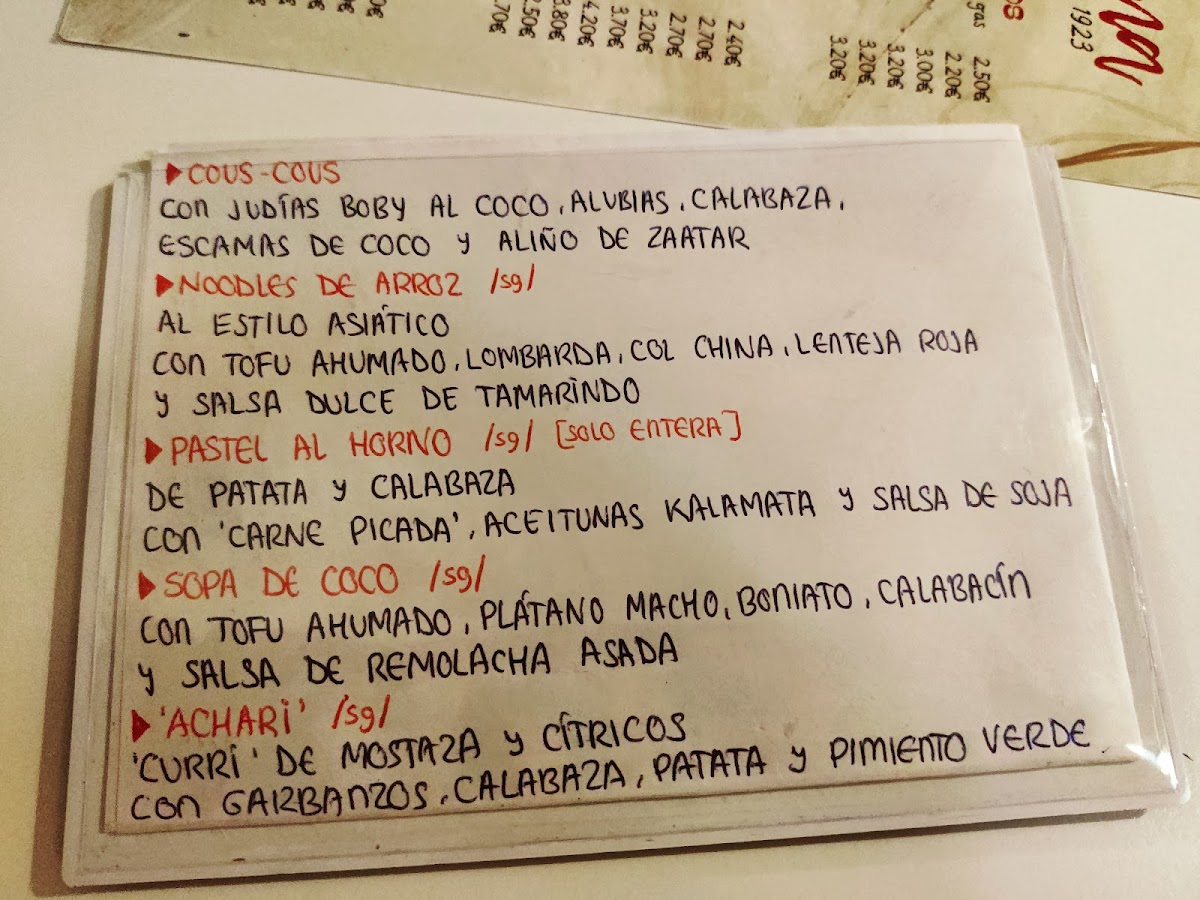 ▶COUS-COUS
CON JUDÍAS BOBY AL COCO, ALUBIAS, CALABAZA,
ESCAMAS DE COCO Y ALIÑO DE ZAATAR
▶NOODLES DE ARROZ /sg/
AL ESTILO ASIÁTICO
CON TOFU AHUMADO, LOMBARDA, COL CHINA, LENTEJA ROJA
Y SALSA DULCE DE TAMARINDO
▶PASTEL AL HORNO /sg/ [SOLO ENTERA]
DE PATATA Y CALABAZA
CON 'CARNE PICADA', ACEITUNAS KALAMATA Y SALSA DE SOJA
▶SOPA DE COCO /sg/
CON TOFU AHUMADO, PLÁTANO MACHO, BONIATO, CALABACÍN
Y SALSA DE REMOLACHA ASADA
▶'ACHARI' /sg/
'CURRI' DE MOSTAZA Y CÍTRICOS
CON GARBANZOS, CALABAZA, PATATA Y PIMIENTO VERDE.
1923
gas 2.50€
2.20€
3.00€
3.20€
3.20€
3.20€
2.40€
2.70€
2.70€
3.20€
3.70€
4.20€
3.80€